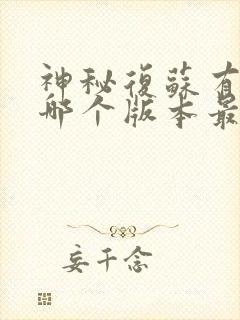 神秘復蘇有
哪个版本最
妄千念